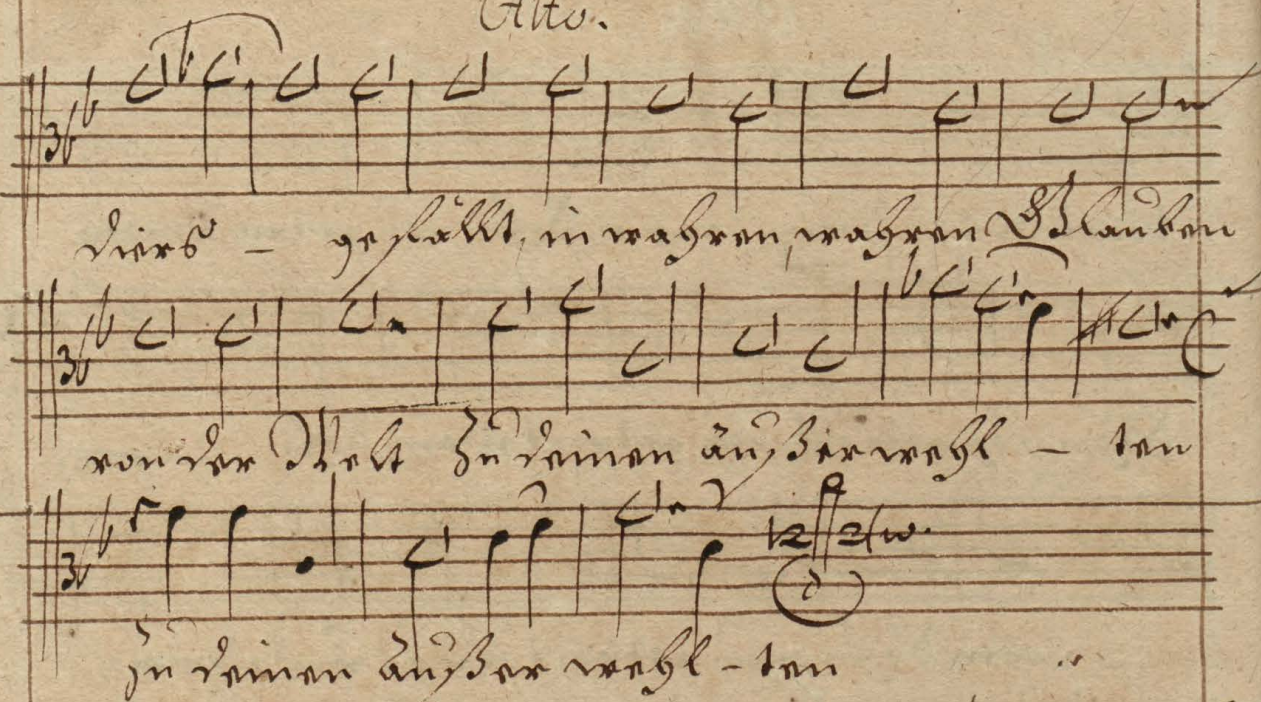 Alto.
diers – gefällt, in wahren, wahren Glauben
von der Welt Zu deinen außerwehl – ten
zu deinen außer wehl – ten